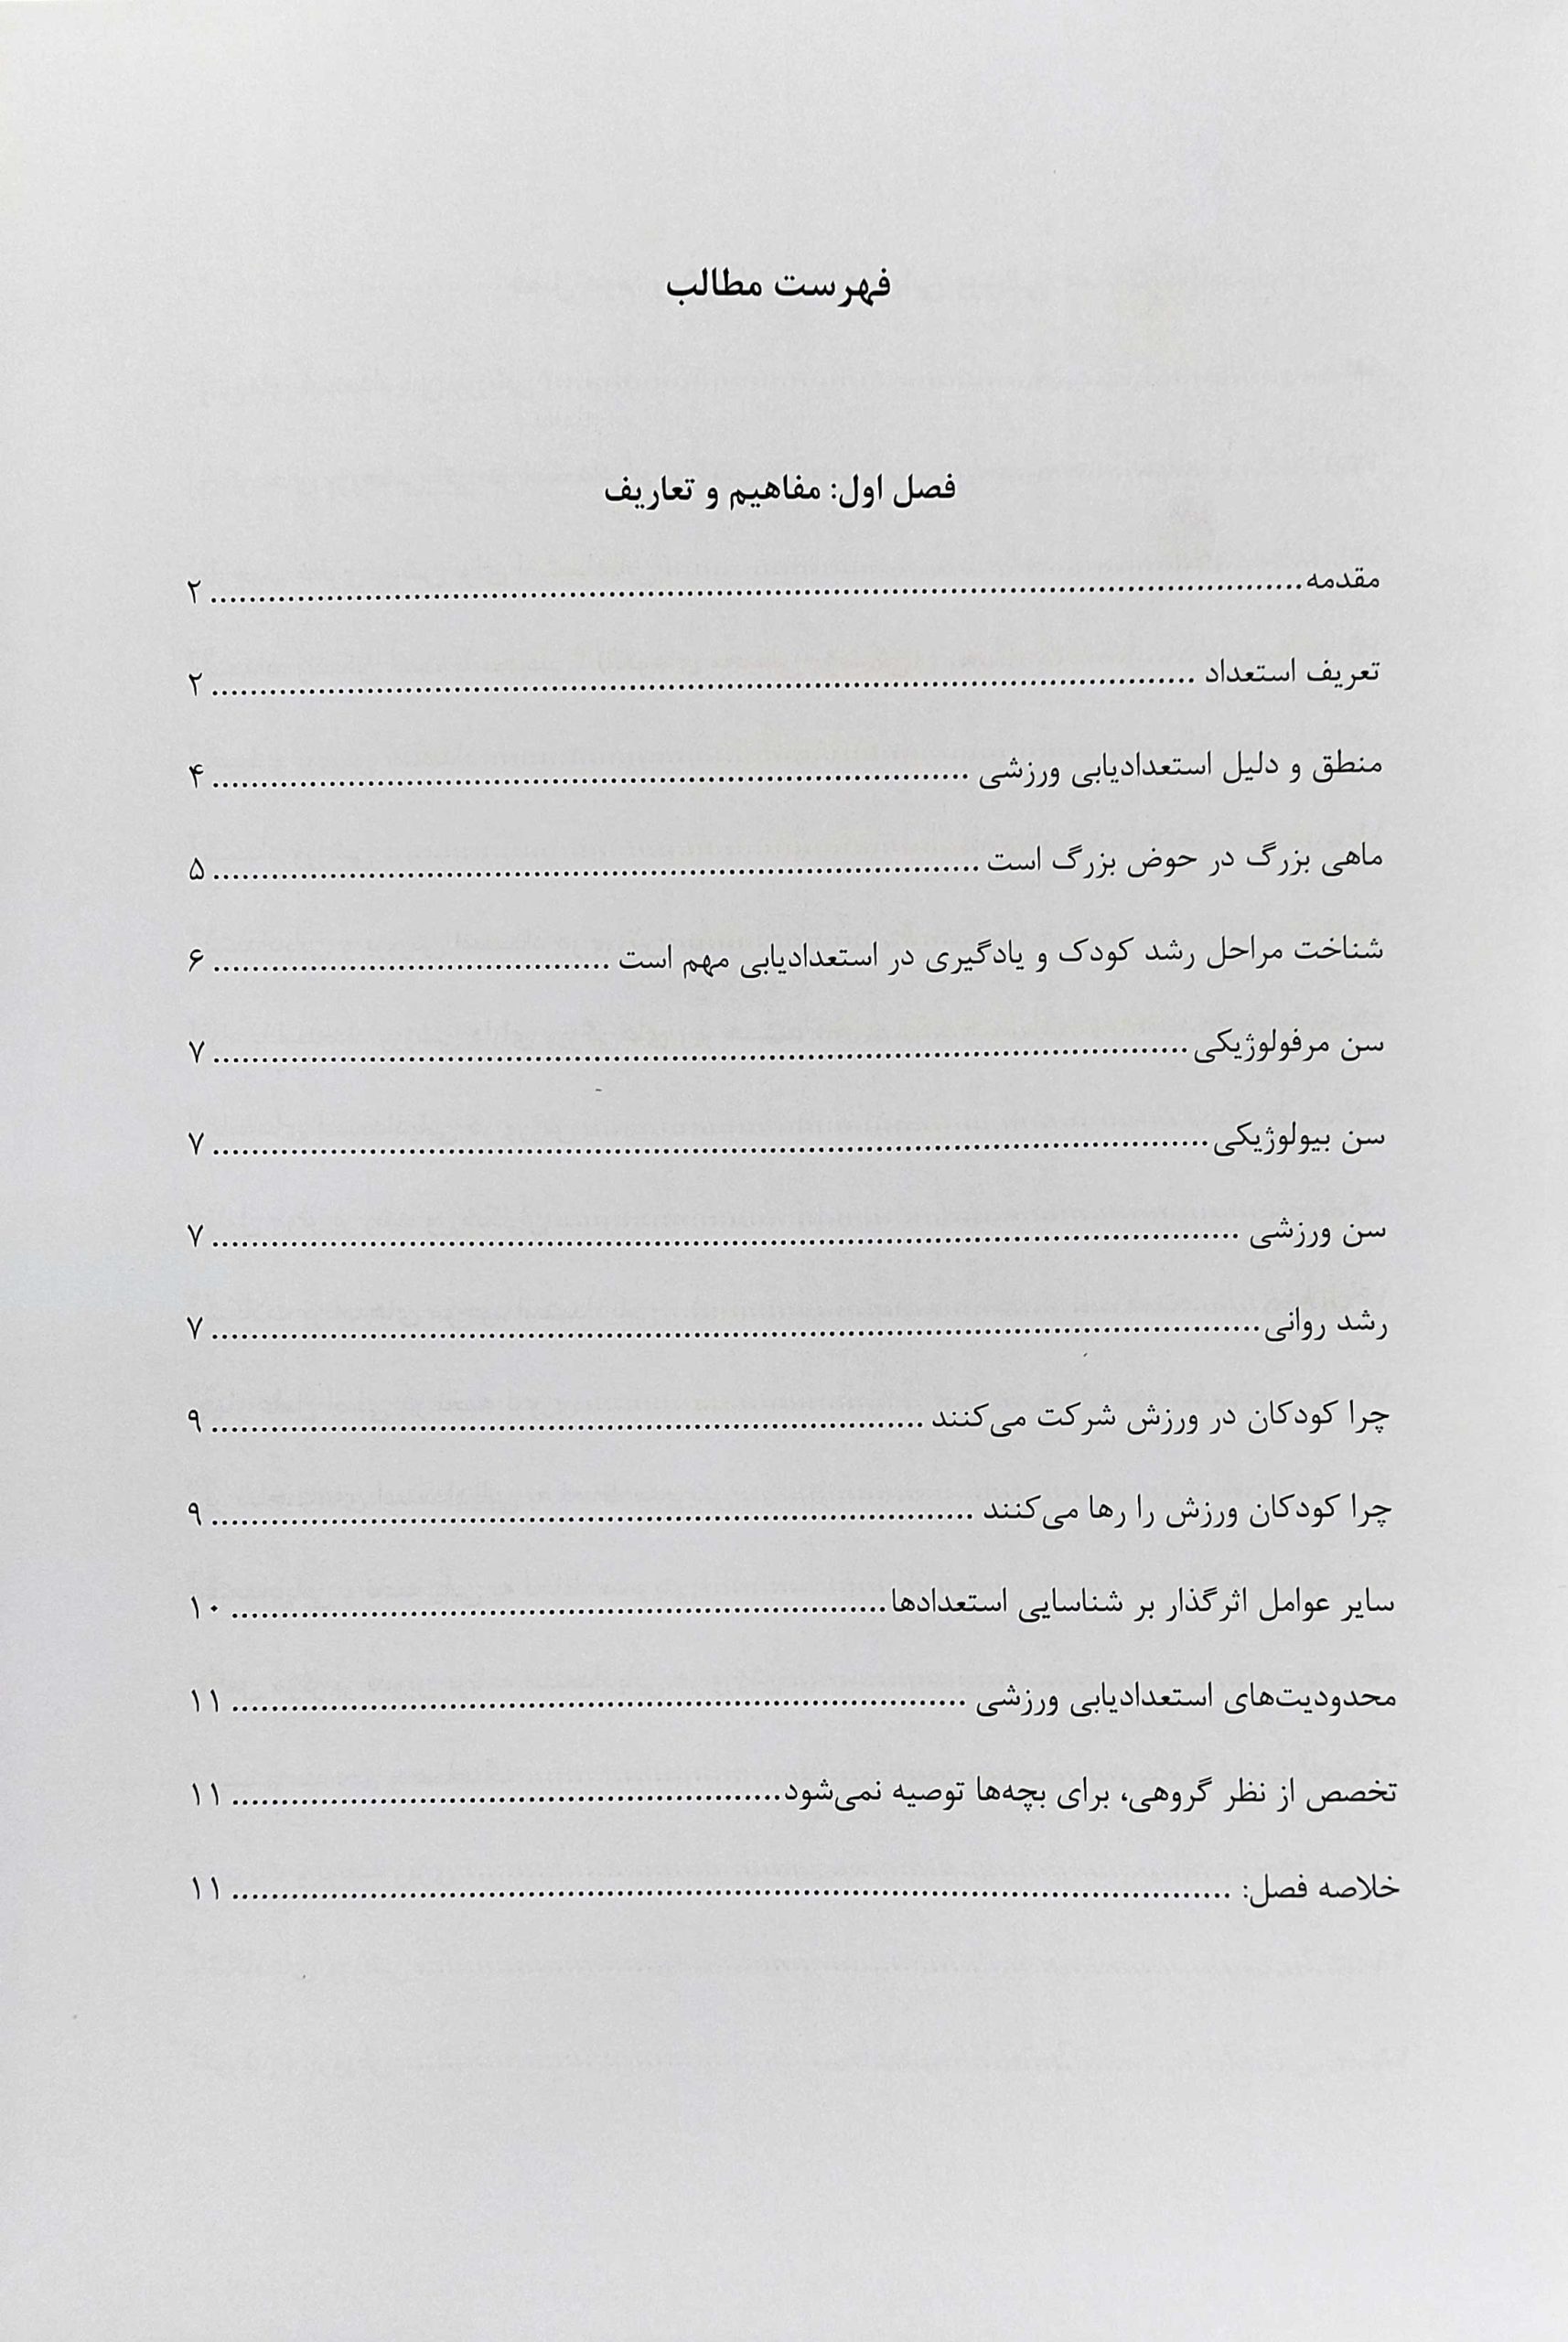 فهرست مطالب
فصل اول: مفاهیم و تعاریف
مقدمه.......................................................................................................... ۲
تعریف استعداد ................................................................................................ ۲
منطق و دلیل استعدادیابی ورزشی ........................................................................ ۴
ماهی بزرگ در حوض بزرگ است ......................................................................... ۵
شناخت مراحل رشد کودک و یادگیری در استعدادیابی مهم است ....................................... ۶
سن مرفولوژیکی............................................................................................... ۷
سن بیولوژیکی................................................................................................. ۷
سن ورزشی .................................................................................................... ۷
رشد روانی...................................................................................................... ۷
چرا کودکان در ورزش شرکت می‌کنند ..................................................................... ۹
چرا کودکان ورزش را رها می‌کنند .......................................................................... ۹
سایر عوامل اثرگذار بر شناسایی استعدادها................................................................ ۱۰
محدودیت‌های استعدادیابی ورزشی ....................................................................... ۱۱
تخصص از نظر گروهی، برای بچه‌ها توصیه نمی‌شود..................................................... ۱۱
خلاصه فصل: ................................................................................................. ۱۱